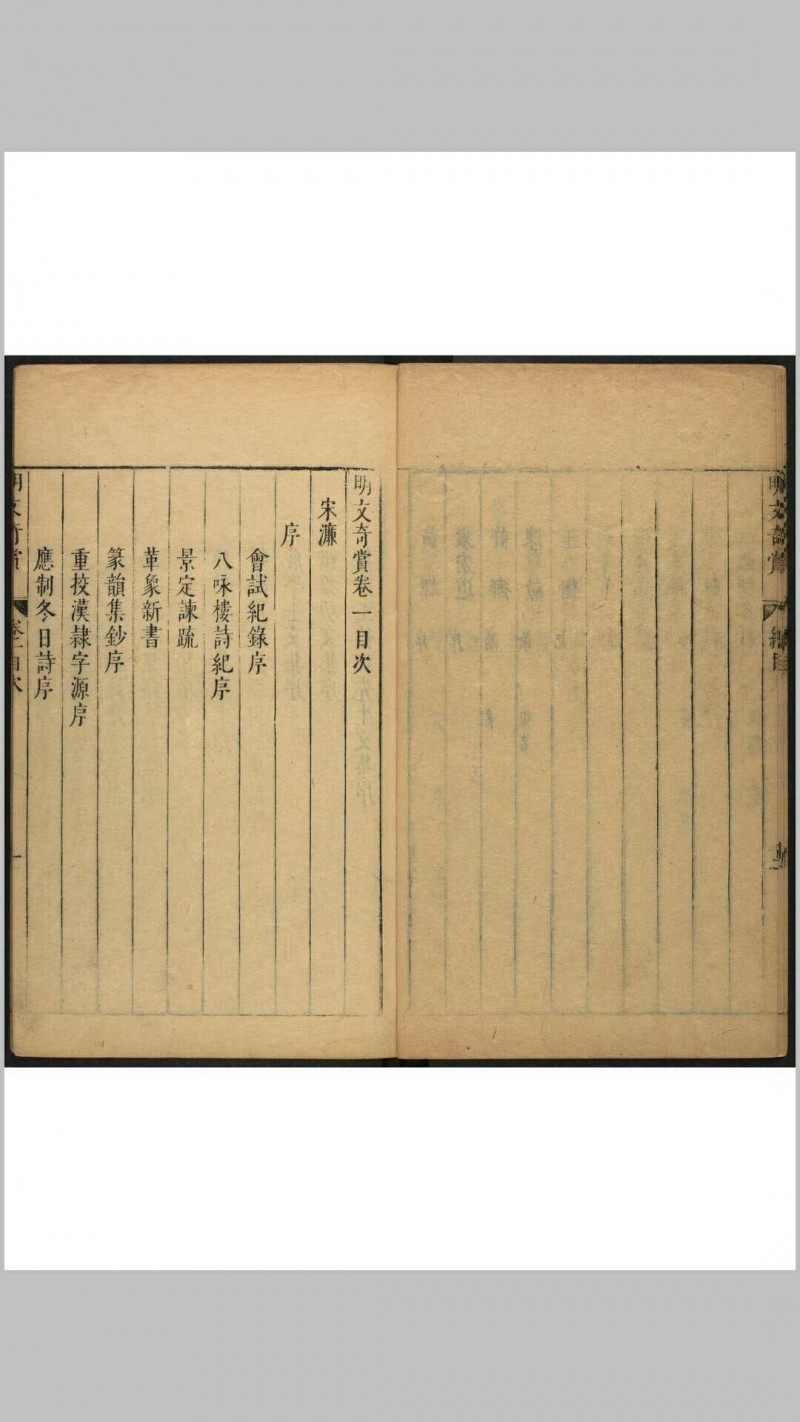 明文奇賞
總目
明文奇賞卷一目次
宋濂
序
會試紀錄序
八咏樓詩紀序
景定諫疏
革象新書
篆韻集鈔序
重挍漢隷字源序
應制冬日詩序
明文奇賞
卷一目次
一